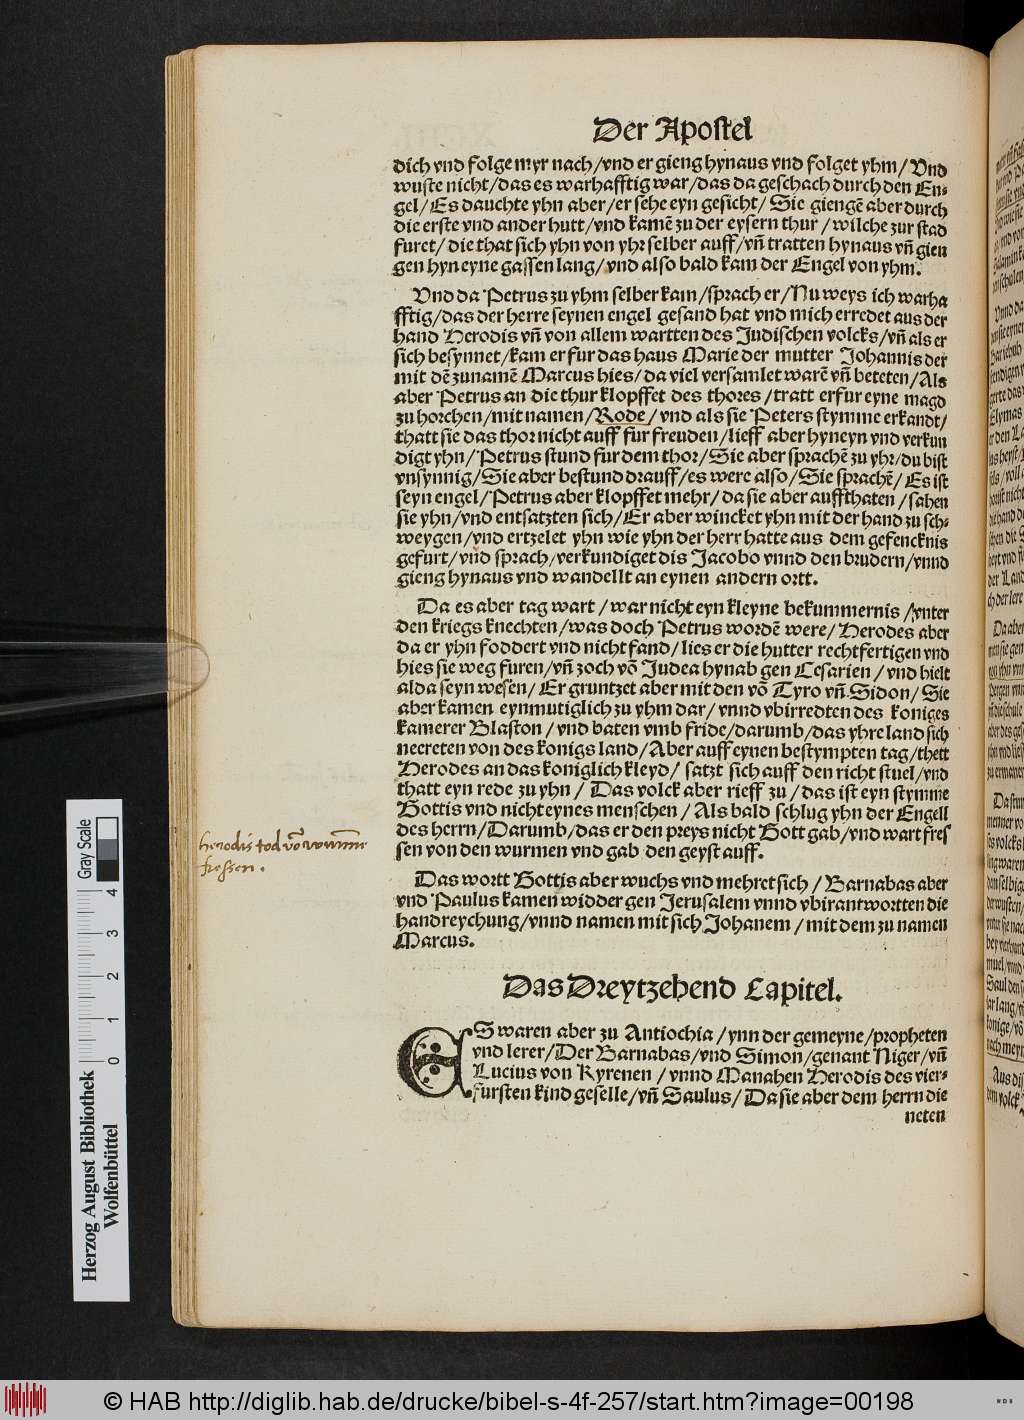 Der Apostel
dich vnd folge myr nach/vnd er gieng hynaus vnd folget yhm/ Vnd
wuste nicht/das es warhafftig war/das da geschach durch den En-
gel/ Es dauchte yhn aber/er sehe eyn gesicht/ Sie giengẽ aber durch
die erste vnd ander hutt/vnd kamẽ zu der eysern thur/ wilche zur stad
furet/ die that sich yhn von yhr selber auff/vñ tratten hynaus vñ gien
gen hyn eyne gassen lang/vnd also bald kam der Engel von yhm.
Vnd da Petrus zu yhm selber kam/sprach er/Nu weys ich warha
fftig/das der herre seynen engel gesand hat vnd mich erredet aus der
hand Herodis vñ von allem wartten des Judischen volcks/vñ als er
sich besynnet/kam er fur das haus Marie der mutter Johannis der
mit dẽ zunamẽ Marcus hies/da viel versamlet warẽ vñ beteten/Als
aber Petrus an die thur klopffet des thores/tratt erfur eyne magd
zu horchen/mit namen/Rode/ vnd als sie Peters stymme erkandt/
thatt sie das thor nicht auff fur freuden/lieff aber hyneyn vnd verkun
digt yhn/Petrus stund fur dem thor/Sie aber sprachẽ zu yhr/du bist
vnsynnig/Sie aber bestund drauff/es were also/Sie sprachẽ/ Es ist
seyn engel/Petrus aber klopffet mehr/da sie aber auffthaten/sahen
sie yhn/vnd entsatzten sich/Er aber wincket yhn mit der hand zu sch-
weygen/vnd ertzelet yhn wie yhn der herr hatte aus dem gefencknis
gefurt/vnd sprach/verkundiget dis Jacobo vnnd den brudern/vnnd
gieng hynaus vnd wandellt an eynen andern ortt.
Da es aber tag wart/war nicht eyn kleyne bekummernis/vnter
den kriegs knechten/was doch Petrus wordẽ were/Herodes aber
da er yhn foddert vnd nicht fand/lies er die hutter rechtfertigen vnd
hies sie weg furen/vñ zoch võ Judea hynab gen Cesarien/vnd hielt
alda seyn wesen/ Er gruntzet aber mit den võ Tyro vñ Sidon/Sie
aber kamen eynmutiglich zu yhm dar/ vnnd vbirredten des koniges
kamerer Blaston/vnd baten vmb fride/darumb/das yhre land sich
necreten von des konigs land/Aber auff eynen bestympten tag/thett
Herodes an das koniglich kleyd/ satzt sich auff den richt stuel/vnd
thatt eyn rede zu yhn/ Das volck aber rieff zu/das ist eyn stymme
Gottis vnd nicht eynes menschen/ Als bald schlug yhn der Engell
des herrn/Darumb/das er den preys nicht Gott gab/vnd wart fres
sen von den wurmen vnd gab den geyst auff.
herodis tod võ würmme
fressen.
Das wortt Gottis aber wuchs vnd mehret sich/ Barnabas aber
vnd Paulus kamen widder gen Jerusalem vnnd vbirantwortten die
handreychung/vnnd namen mit sich Johanem/mit dem zu namen
Marcus.
Das Dreytzehend Capitel.
ES waren aber zu Antiochia/ynn der gemeyne/propheten
vnd lerer/Der Barnabas/vnd Simon/genant Niger/vñ
Lucius von Kyrenen/vnnd Manahen Herodis des vier-
fursten kind geselle/vñ Saulus/Da sie aber dem herrn die
neten
Gray Scale
0 1 2 3 4
Herzog August Bibliothek
Wolfenbüttel
© HAB http://diglib.hab.de/drucke/bibel-s-4f-257/start.htm?image=00198